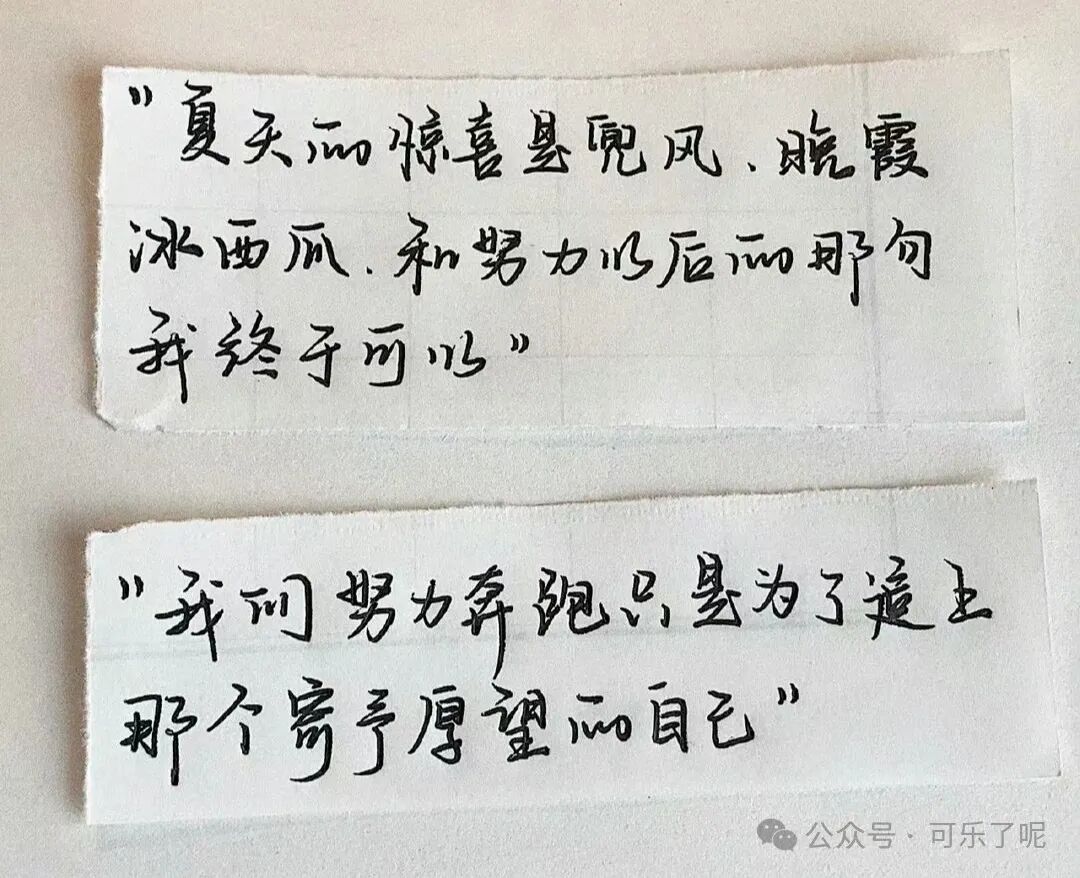 "夏天的惊喜是兜风、晚霞
冰西瓜、和努力以后的那句
我终于可以"
"我们努力奔跑只是为了追上
那个寄予厚望的自己"
公众号·可乐了呢